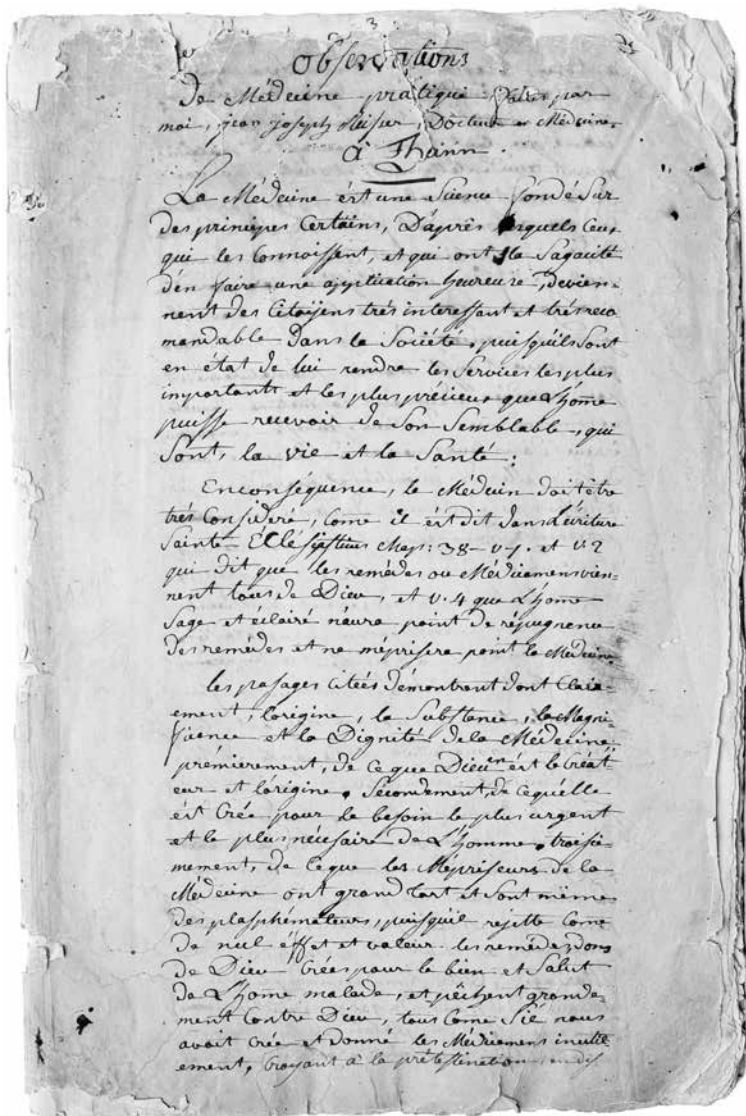 3
Observations
De Médecine pratique faites par
moi, jean joseph Docteur en Médecine
à Thann.
La Médecine ést une Science fondé Sur
des principes Certains, D'après lesquels Ceux
qui les Connaissent, et qui ont la Sagacité
d'en faire une application heureuse, devien-
nent des Citoÿens trés interessant et trés reco
mandable Dans la Société, puisqu'ils Sont
en état de lui rendre les Services les plus
importants et les plus précieux que L'hôme
puisse recevoir de Son Semblable, qui
Sont, la vie et la Santé:
Enconséquence, le Médecin doit être
trés Consideré, Come il ést dit dans L'écriture
Sainte Ecclésiastiuus Chap: 38 - v. 1. et v. 2
qui dit que les remédes ou Médicamens vien-
nent tous de Dieu, et v. 4 que L'hôme
Sage et éclairé n'aura point de répugnence
des remédes et ne méprisera point la Médecine.
les pasages citées démontrent dont Clair-
ement, l'origine, la Substance, la Magni
ficence et la Dignité de la Médecine,
prémierement, de ce que Dieu en ést le Créat
eur et l'origine. Sécondement, de ce qu'élle
ést Crée pour le besoin le plus urgent
et le plus nécesaire de L'homme. troisie
mement, de ce que les Mépriseurs de la
Médecine ont grand tort et Sont même
des plasphémateurs, puisqu'il rejette Come
de nul éffet et valeur les remédes, dons
de Dieu Crées pour le bien et Salut
de L'hôme malade, et pêchent grande-
ment Contre Dieu, tous Come S'il nous
avoit Crée et donné les Médicamens inutil
ement, Croyant à la prétestination